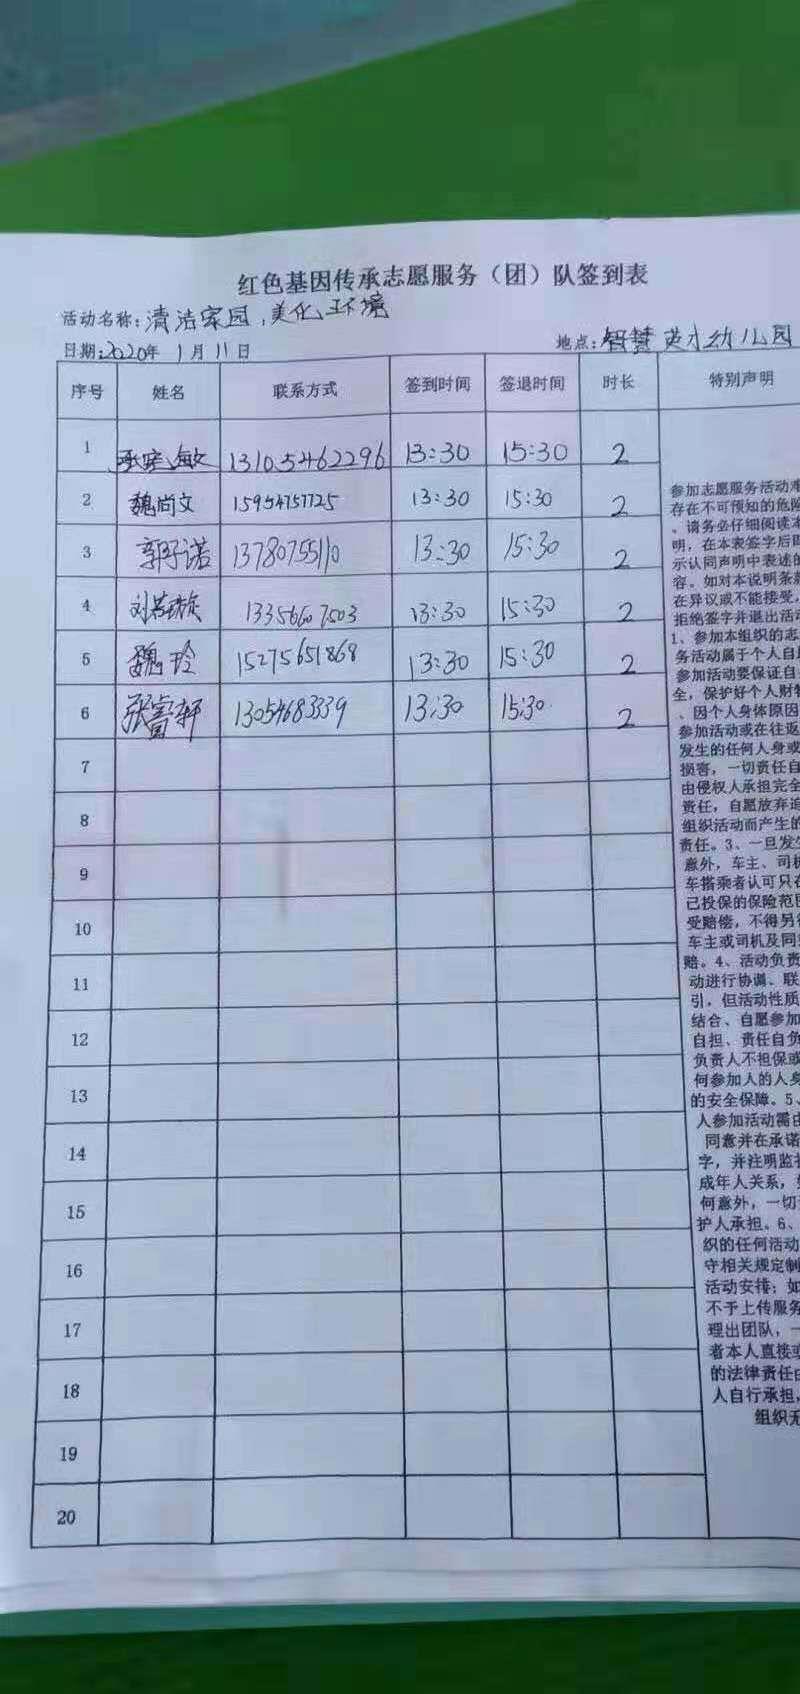 红色基因传承志愿服务（团）队签到表
活动名称:清洁家园,美化环境
日期:2020年 1月 11日
地点:智慧英才幼儿园
序号 姓名 联系方式 签到时间 签退时间 时长 特别声明
1 敏 13105462296 13:30 15:30 2
2 魏尚文 15954757725 13:30 15:30 2
3 郭子诺 13780755110 13:30 15:30 2
4 刘 13356607503 13:30 15:30 2
5 魏玲 15275651868 13:30 15:30 2
6 张睿轩 13054683339 13:30 15:30 2
7
8
9
10
11
12
13
14
15
16
17
18
19
20
参加志愿服务活动难
存在不可预知的危险
，请务必仔细阅读本
明，在本表签字后即
示认同声明中表述的
容。如对本说明条款
在异议或不能接受，
拒绝签字并退出活动
1、参加本组织的志
务活动属于个人自愿
参加活动要保证自
全，保护好个人财物
、因个人身体原因
参加活动或在往返
发生的任何人身或
损害，一切责任自
由侵权人承担完全
责任，自愿放弃追
组织活动而产生的
责任。3、一旦发生
意外，车主、司机
车搭乘者认可只在
己投保的保险范围
受赔偿，不得另行
车主或司机及同
赔。4、活动负责
动进行协调、联
引，但活动性质
结合、自愿参加
自担、责任自负
负责人不担保或
何参加人的人身
的安全保障。5、
人参加活动需由
同意并在承诺
字，并注明监护
成年人关系，
何意外，一切
护人承担。6、
织的任何活动
守相关规定制
活动安排；如
不予上传服务
理出团队，一
者本人直接或
的法律责任由
人自行承担，
组织无